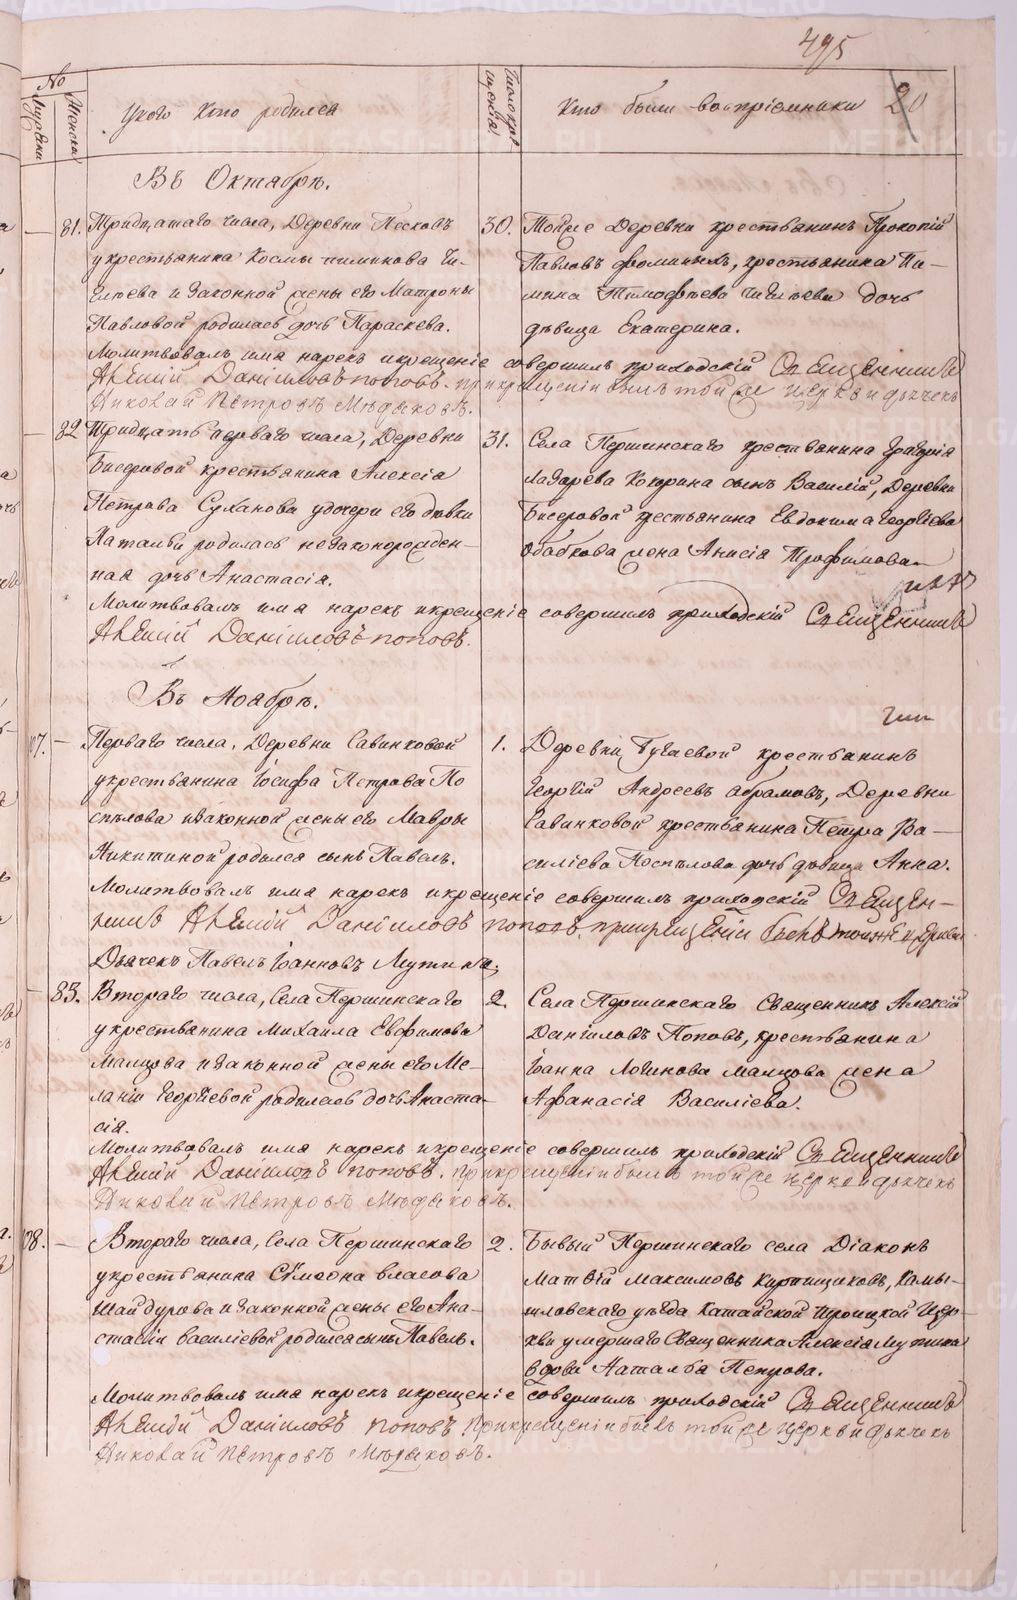 495
№
Мужеска
Женска
У кого кто родился
Число крещенія
Кто были воспріемники
20
Въ Октябрѣ.
81. Тридцатаго числа, Деревни Песковъ
у крестьянина Космы
и законной жены его Матроны
Павловой родилась дочь Параскева.
30. Тойже Деревни крестьянинъ Прокопій
Павловъ Ѳоминыхъ, крестьянина Пи-
мина Тимофѣева дочь
дѣвица Екатерина.
Молитвовалъ имя нарекъ и крещеніе совершилъ приходскій Священникъ
Алексій Даніиловъ Поповъ. При крещеніи былъ тойже церкви дьячекъ
Николай Петровъ Мѣдяковъ.
82 Тридцать перваго числа, Деревни
Бисеровой крестьянина Алексія
Петрова Суханова у дочери его дѣвки
Натальи родилась незаконорожден-
ная дочь Анастасія.
31. Села Першинскаго крестьянина
Лазарева Кокорина сынъ Василій, Деревни
Бисеровой крестьянина Евдокима Георгіева
Обабкова жена Анисія Трофимова.
Молитвовалъ имя нарекъ и крещеніе совершилъ приходскій Священникъ
Алексій Даніиловъ Поповъ.
Въ Ноябрѣ.
107. Перваго числа, Деревни Савинковой
у крестьянина Іосифа Петрова По
спѣлова и законной жены его Мавры
Никитиной родился сынъ Павелъ.
1. Деревни Бугаевой крестьянинъ
Георгій Андреевъ Абрамовъ, Деревни
Савинковой крестьянина Петра Ва-
силіева Поспѣлова дочь дѣвица Анна.
Молитвовалъ имя нарекъ и крещеніе совершилъ приходскій Священ-
никъ Алексій Даніиловъ Поповъ. при крещеніи былъ тоиже церкви
Дьячекъ Павелъ Іоанновъ Мутинъ.
83. Втораго числа, Села Першинскаго
у крестьянина Михаила Евфимова
Мальцова и законной жены его Ме-
ланіи Георгіевой родилась дочь Анаста-
сія.
2. Села Першинскаго Священникъ Алексій
Даніиловъ Поповъ, крестьянина
Іоанна Логинова Мальцова жена
Афанасія Василіева.
Молитвовалъ имя нарекъ и крещеніе совершилъ приходскій Священникъ
Алексій Даніиловъ Поповъ. При крещеніи былъ тойже церкви дьячекъ
Николай Петровъ Мѣдяковъ.
108. Втораго числа, Села Першинскаго
у крестьянина Сѵмеона Власова
Шайдурова и законной жены его Ана-
стасіи Василіевой родился сынъ Павелъ.
2. Бывый Першинскаго села Діаконъ
Матвій Максимовъ Кирпищиковъ, Камы-
шловскаго уѣзда Катайской Троицкой Цер-
кви умершаго Священника Алексія Мутина
вдова Наталья Петрова.
Молитвовалъ имя нарекъ и крещеніе совершилъ приходскій Священникъ
Алексій Даніиловъ Поповъ При крещеніи былъ тойже церкви дьячекъ
Николай Петровъ Мѣдяковъ.
METRIKI.GASO-URAL.RU